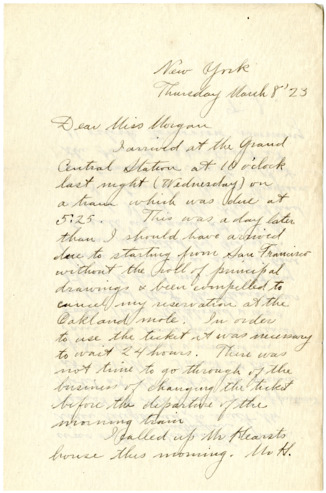 New York
Thursday March 8th '23
Dear Miss Morgan
I arrived at the Grand
Central Station at 10 o'clock
last night (Wednesday) on
a train which was due at
5:25. This was a day later
than I should have arrived
due to starting from San Francisco
without the roll of principal
drawings & been compelled to
cancel my reservation at the
Oakland mole. In order
to use the ticket it was necessary
to wait 24 hours. There was
not time to go through of the
business of changing the ticket
before the departure of the
morning train
I called up Mr Hearsts
house this morning. Mr H.